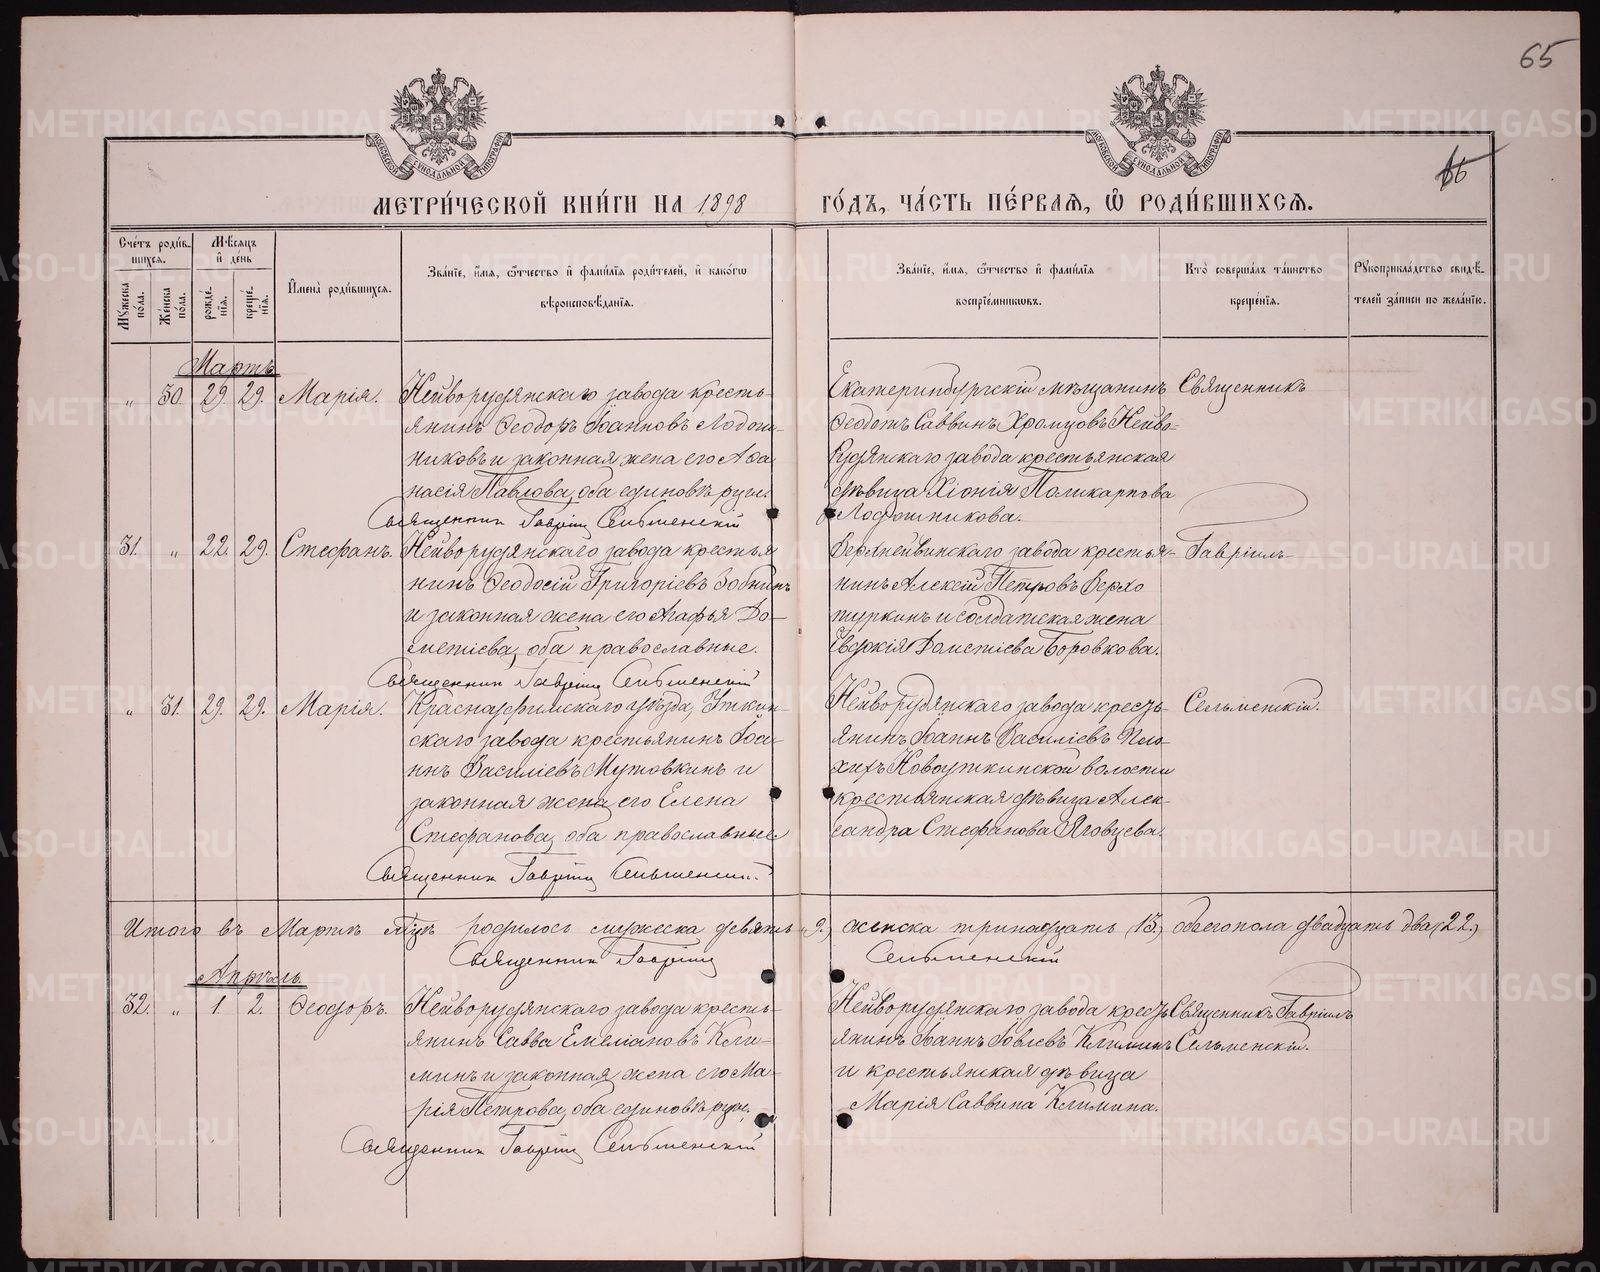 65
66
МЕТРИ́ЧЕСКОЙ КНИ́ГИ НА 1898 ГО́ДЪ, ЧА́СТЬ ПЕ́РВАѦ, Ѡ҆ РОДИ́ВШИХСѦ.
Сче́тъ роди́в-
шихсѧ.
Мꙋ́жеска по́ла.
Же́нска по́ла.
Мѣ́сѧцъ и҆ де́нь
рожде́-
нїѧ.
креще́-
нїѧ.
И҆мена̀ роди́вшихсѧ.
Зва́нїе, и҆́мѧ, ѻ҆́тчество и҆ фами́лїѧ роди́телей, и҆ како́гѡ
вѣроисповѣ́данїѧ.
Зва́нїе, и҆́мѧ, ѻ҆́тчество и҆ фами́лїѧ
воспрїе́мникѡвъ.
Кто̀ соверша́лъ та́инство
креще́нїѧ.
Рꙋкоприкла́дство свидѣ́-
телей за́писи по жела́нїю.
Мартъ
„ 30. 29. 29. Марія.
Нейворудянскаго завода кресть-
янинъ Ѳеодоръ Іоанновъ Лодош-
никовъ и законная жена его Аѳа
насія Павлова, оба единовѣрцы.
Священник Гавріил Сельменскій
Екатеринбургскій мѣщанинъ
Ѳеодотъ Саввинъ Хромцовъ Нейво-
Рудянскаго завода крестьянская
дѣвица Хіонія Поликарпова
Лодошникова.
Священникъ
31. „ 22. 29. Стефанъ.
Нейворудянскаго завода крестья
нинъ Ѳеодосій Григоріевъ Зобнинъ
и законная жена его Агафья До-
метіева, оба православные.
Священник Гавріил Сельменскій
Верхнейвинскаго завода крестья-
нинъ Алексій Петровъ Верхо
туркинъ и солдатская жена
Евдокія Дометіева Боровкова.
Гавріилъ
„ 31. 29. 29. Марія.
Красноуфимскаго уѣзда, Уткин-
скаго завода крестьянинъ Іоа-
ннъ Василіевъ Мутовкинъ и
законная жена его Елена
Стефанова, оба православные
Священник Гавріил Сельменскій
Нейворудянскаго завода кресть-
янинъ Іоаннъ Василіевъ Пло-
хихъ Новоуткинской волости
крестьянская дѣвица Алек-
сандра Стефанова Яговцева.
Сельменскій.
Итого въ Мартѣ мѣцѣ родилось мужеска девять (9.) женска тринадцать (13) обоего пола двадцать два (22.)
Священник Гавріил Сельменскій
Апрѣль.
32. „ 1. 2. Ѳеодоръ.
Нейворудянскаго завода кресть-
янинъ Савва Емеліановъ Кли-
минъ и законная жена его Ма-
рія Петрова, оба единовѣрцы.
Священник Гавріил Сельменскій
Нейворудянскаго завода кресть
янинъ Іоаннъ Іовлевъ Климинъ
и крестьянская дѣвица
Марія Саввина Климина.
Священникъ Гавріилъ
Сельменскій.
METRIKI.GASO-URAL.RU